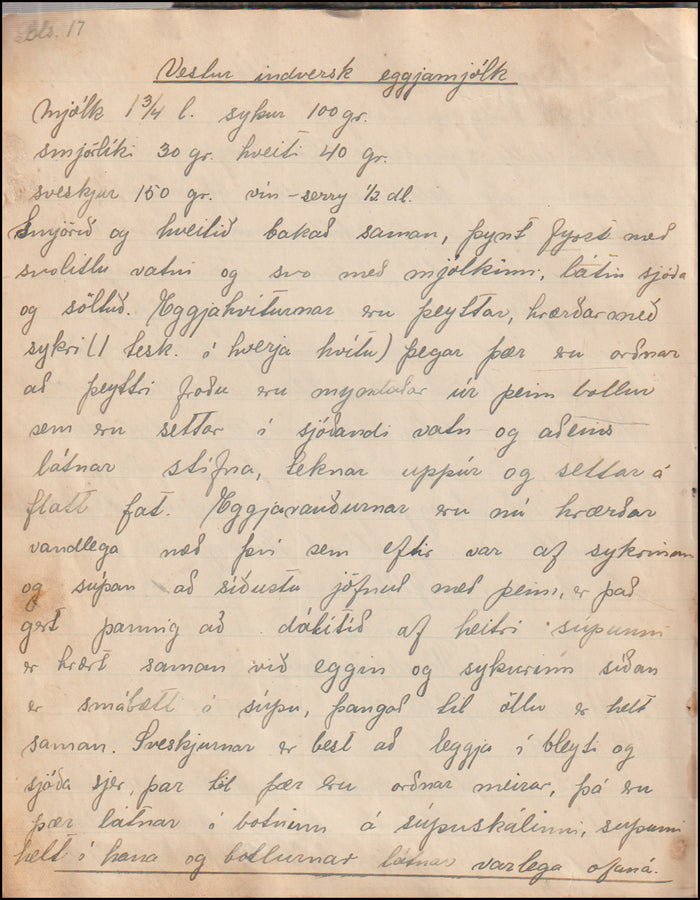 Bls. 17
Vestur indversk eggjamjólk
Mjólk 1 3/4 l. sykur 100 gr.
smjörlíki 30 gr. hveiti 40 gr.
sveskjur 150 gr. vín-serry 1/2 dl.
Smjörið og hveitið bakað saman, þynt fyrst með
svolitlu vatni og svo með mjólkinni, látin sjóða
og söltuð. Eggjahvíturnar eru þeyttar, hrærðar með
sykri (1 tesk. í hverja hvítu) þegar þær eru orðnar
að þeyttri froðu eru myndaðar úr þeim bollur
sem eru settar í sjóðandi vatn og aðeins
látnar stífna, teknar uppúr og settar á
flatt fat. Eggjarauðurnar eru nú hrærðar
vandlega með því sem eftir var af sykrinum
og súpan að síðustu jöfnuð með þeim, er það
gert þannig að dálítið af heitri súpunni
er hrært saman við eggin og sykurinn síðan
er smábætt í súpu, þangað til öllu er helt
saman. Sveskjurnar er best að leggja í bleyti og
sjóða sjer, þar til þær eru orðnar meirar, þá eru
þær látnar í botninn á súpuskálinni, súpunni
helt í hana og bollurnar látnar varlega ofaná.